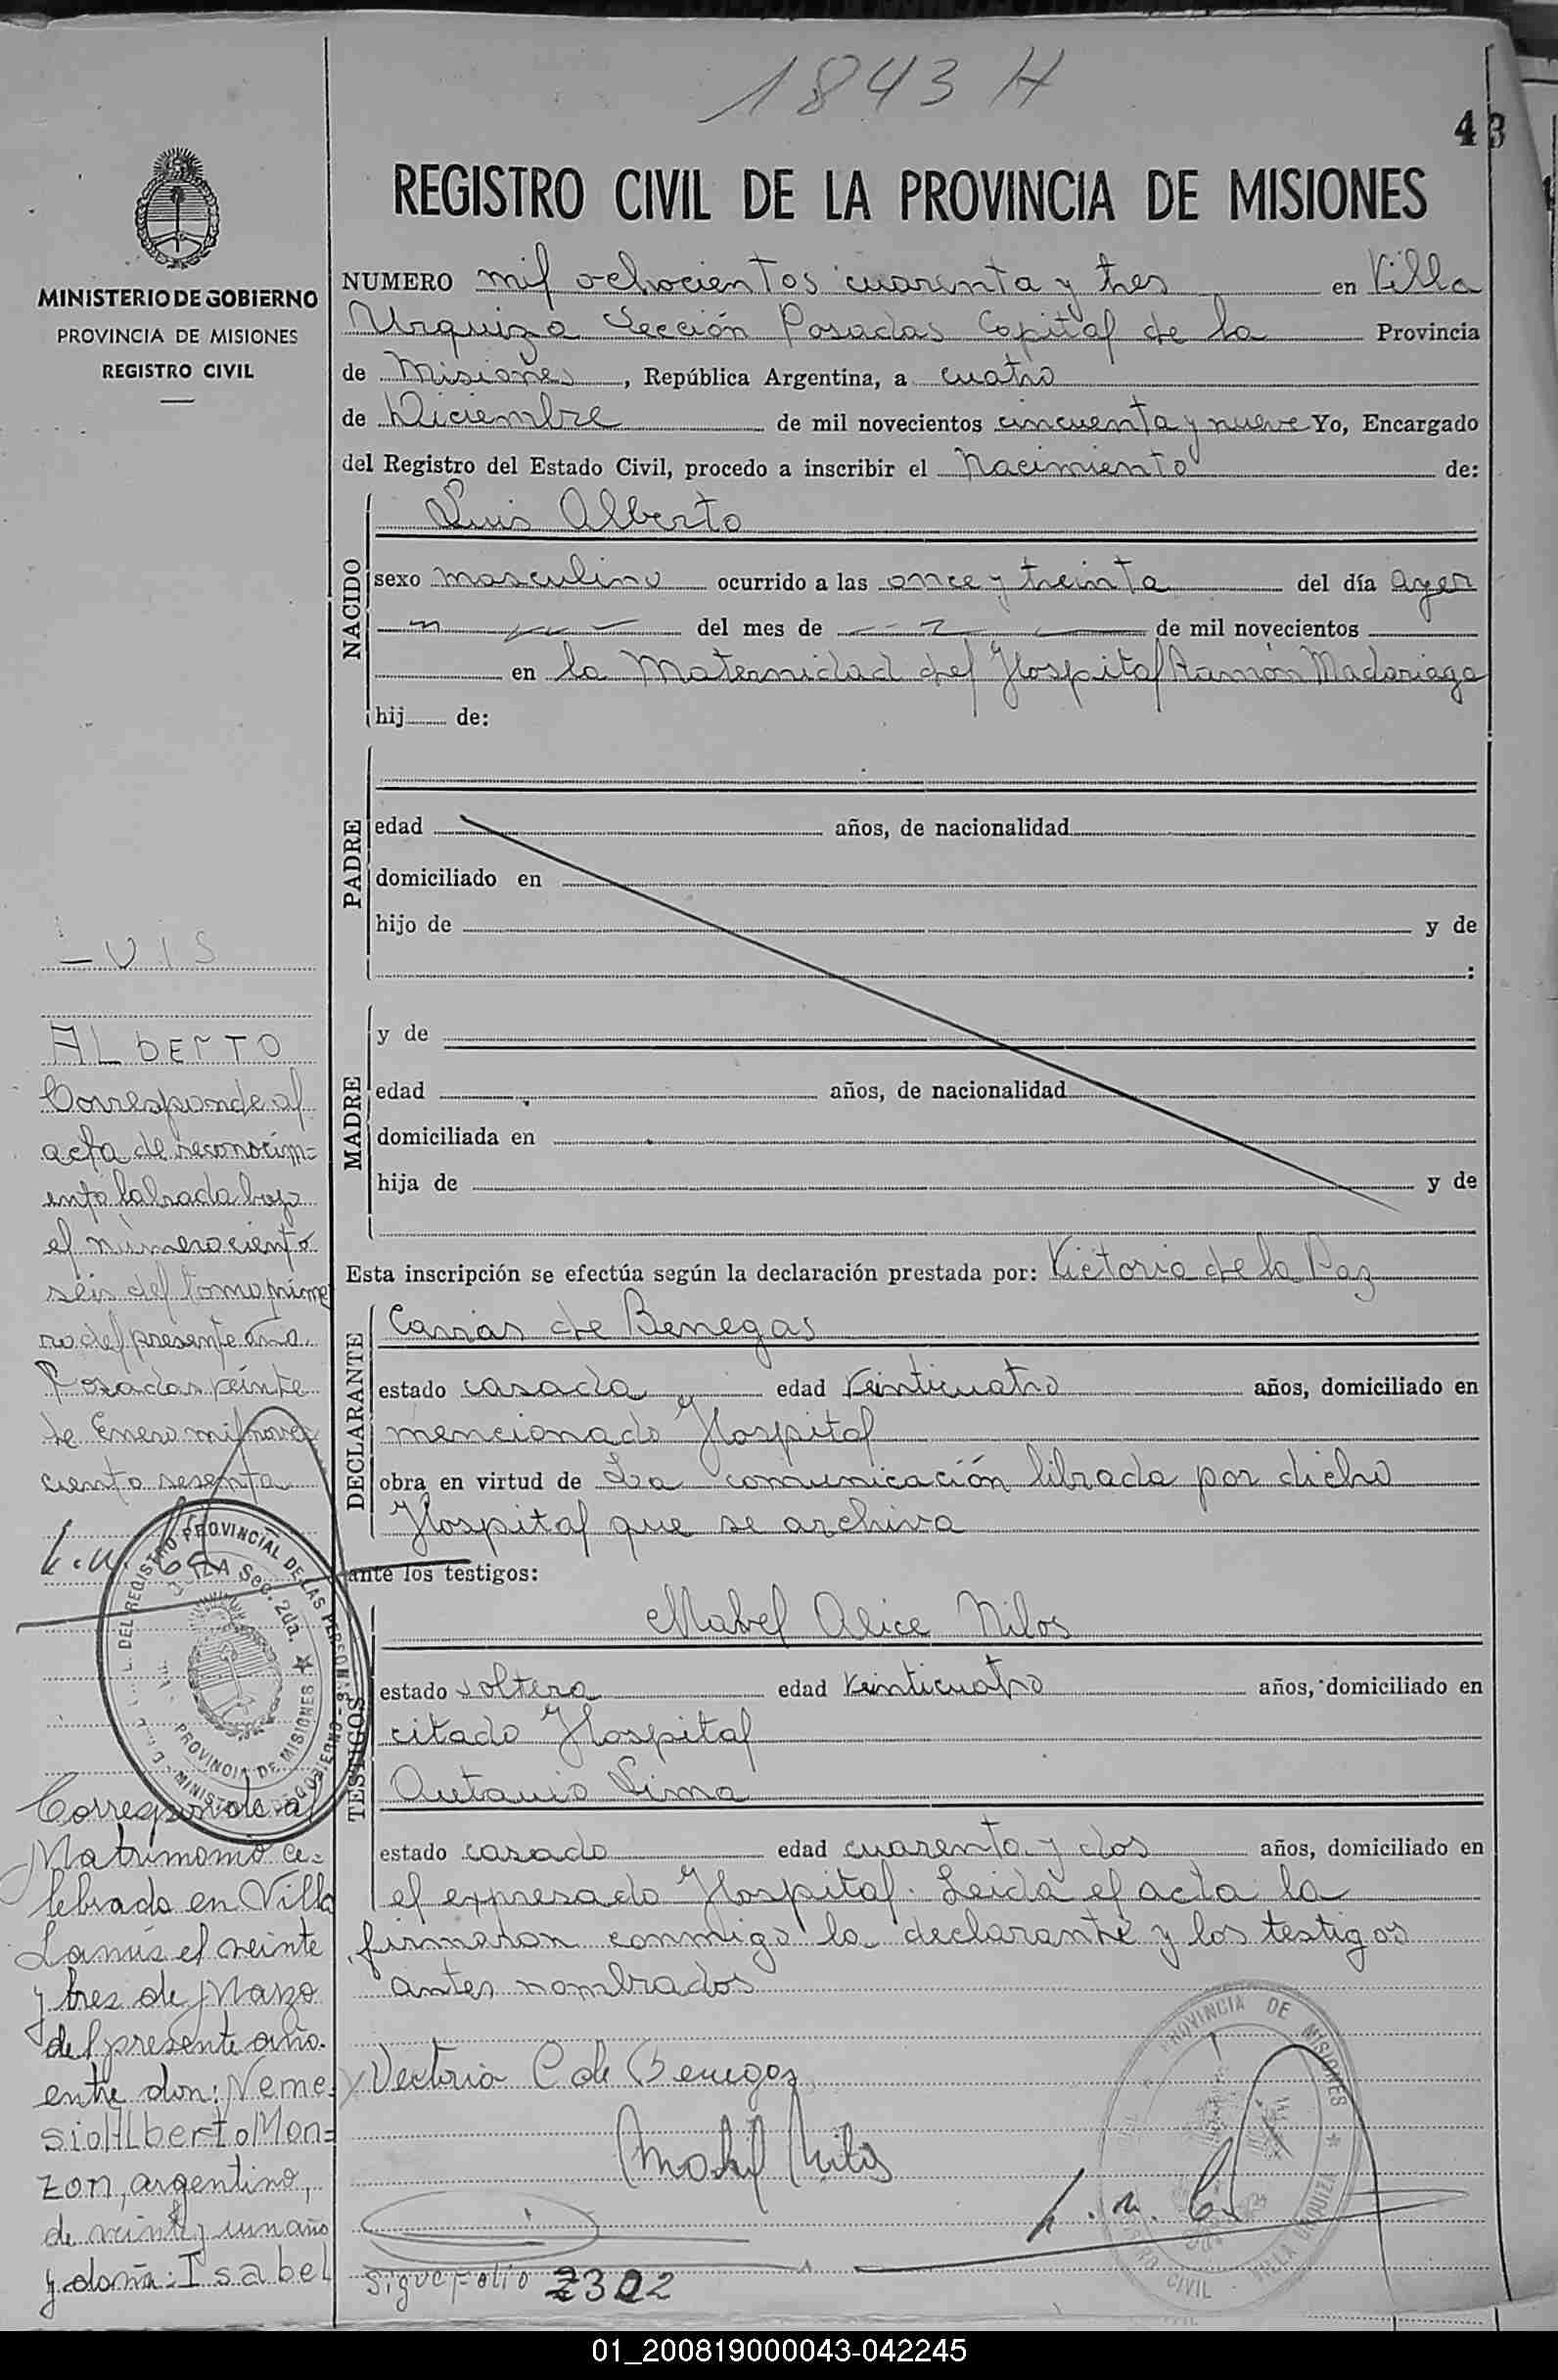 1843 H
43
REGISTRO CIVIL DE LA PROVINCIA DE MISIONES
MINISTERIO DE GOBIERNO
PROVINCIA DE MISIONES
REGISTRO CIVIL
NUMERO mil ochocientos cuarenta y tres en Villa
Urquiza Sección Posadas Capital de la Provincia
de Misiones, República Argentina, a cuatro
de Diciembre de mil novecientos cincuenta y nueve Yo, Encargado
del Registro del Estado Civil, procedo a inscribir el Nacimiento de:
NACIDO
Luis Alberto
sexo masculino ocurrido a las once y treinta del día ayer
del mes de de mil novecientos
en la Maternidad del Hospital Ramón Madariaga
hij de:
PADRE
edad años, de nacionalidad
domiciliado en
hijo de y de
:
MADRE
y de
edad años, de nacionalidad
domiciliada en
hija de y de
Esta inscripción se efectúa según la declaración prestada por: Victoria de la Paz
DECLARANTE
Carias de Benegas
estado casada edad veinticuatro años, domiciliado en
mencionado Hospital
obra en virtud de La comunicación librada por dicho
Hospital que se archiva
ante los testigos:
TESTIGOS
Mabel Alice Nilos
estado soltera edad veinticuatro años, domiciliado en
citado Hospital
Antonio Lima
estado casado edad cuarenta y dos años, domiciliado en
el expresado Hospital. Leida el acta la
firmaron conmigo la declarante y los testigos
antes nombrados
Victoria C de Benegas
Mabel Nilos
Sigue Folio 2302
LUIS
ALBERTO
Corresponde al
acta de reconocim=
ento labrada bajo
el número ciento
seis del tomo prime
ro del presente año.
Posadas veinte
de Enero mil nove
ciento sesenta
DEL REGISTRO PROVINCIAL DE LAS PERSONAS
Sec. 2da.
PROVINCIA DE MISIONES
Corresponde al
Matrimonio ce=
lebrado en Villa
Lanús el veinte
y tres de Marzo
del presente año.
entre don: Neme=
sio Alberto Mon=
zon, argentino,
de veinte y un año
y doña: Isabel
PROVINCIA DE MISIONES
REGISTRO CIVIL - VILLA URQUIZA
01_200819000043-042245